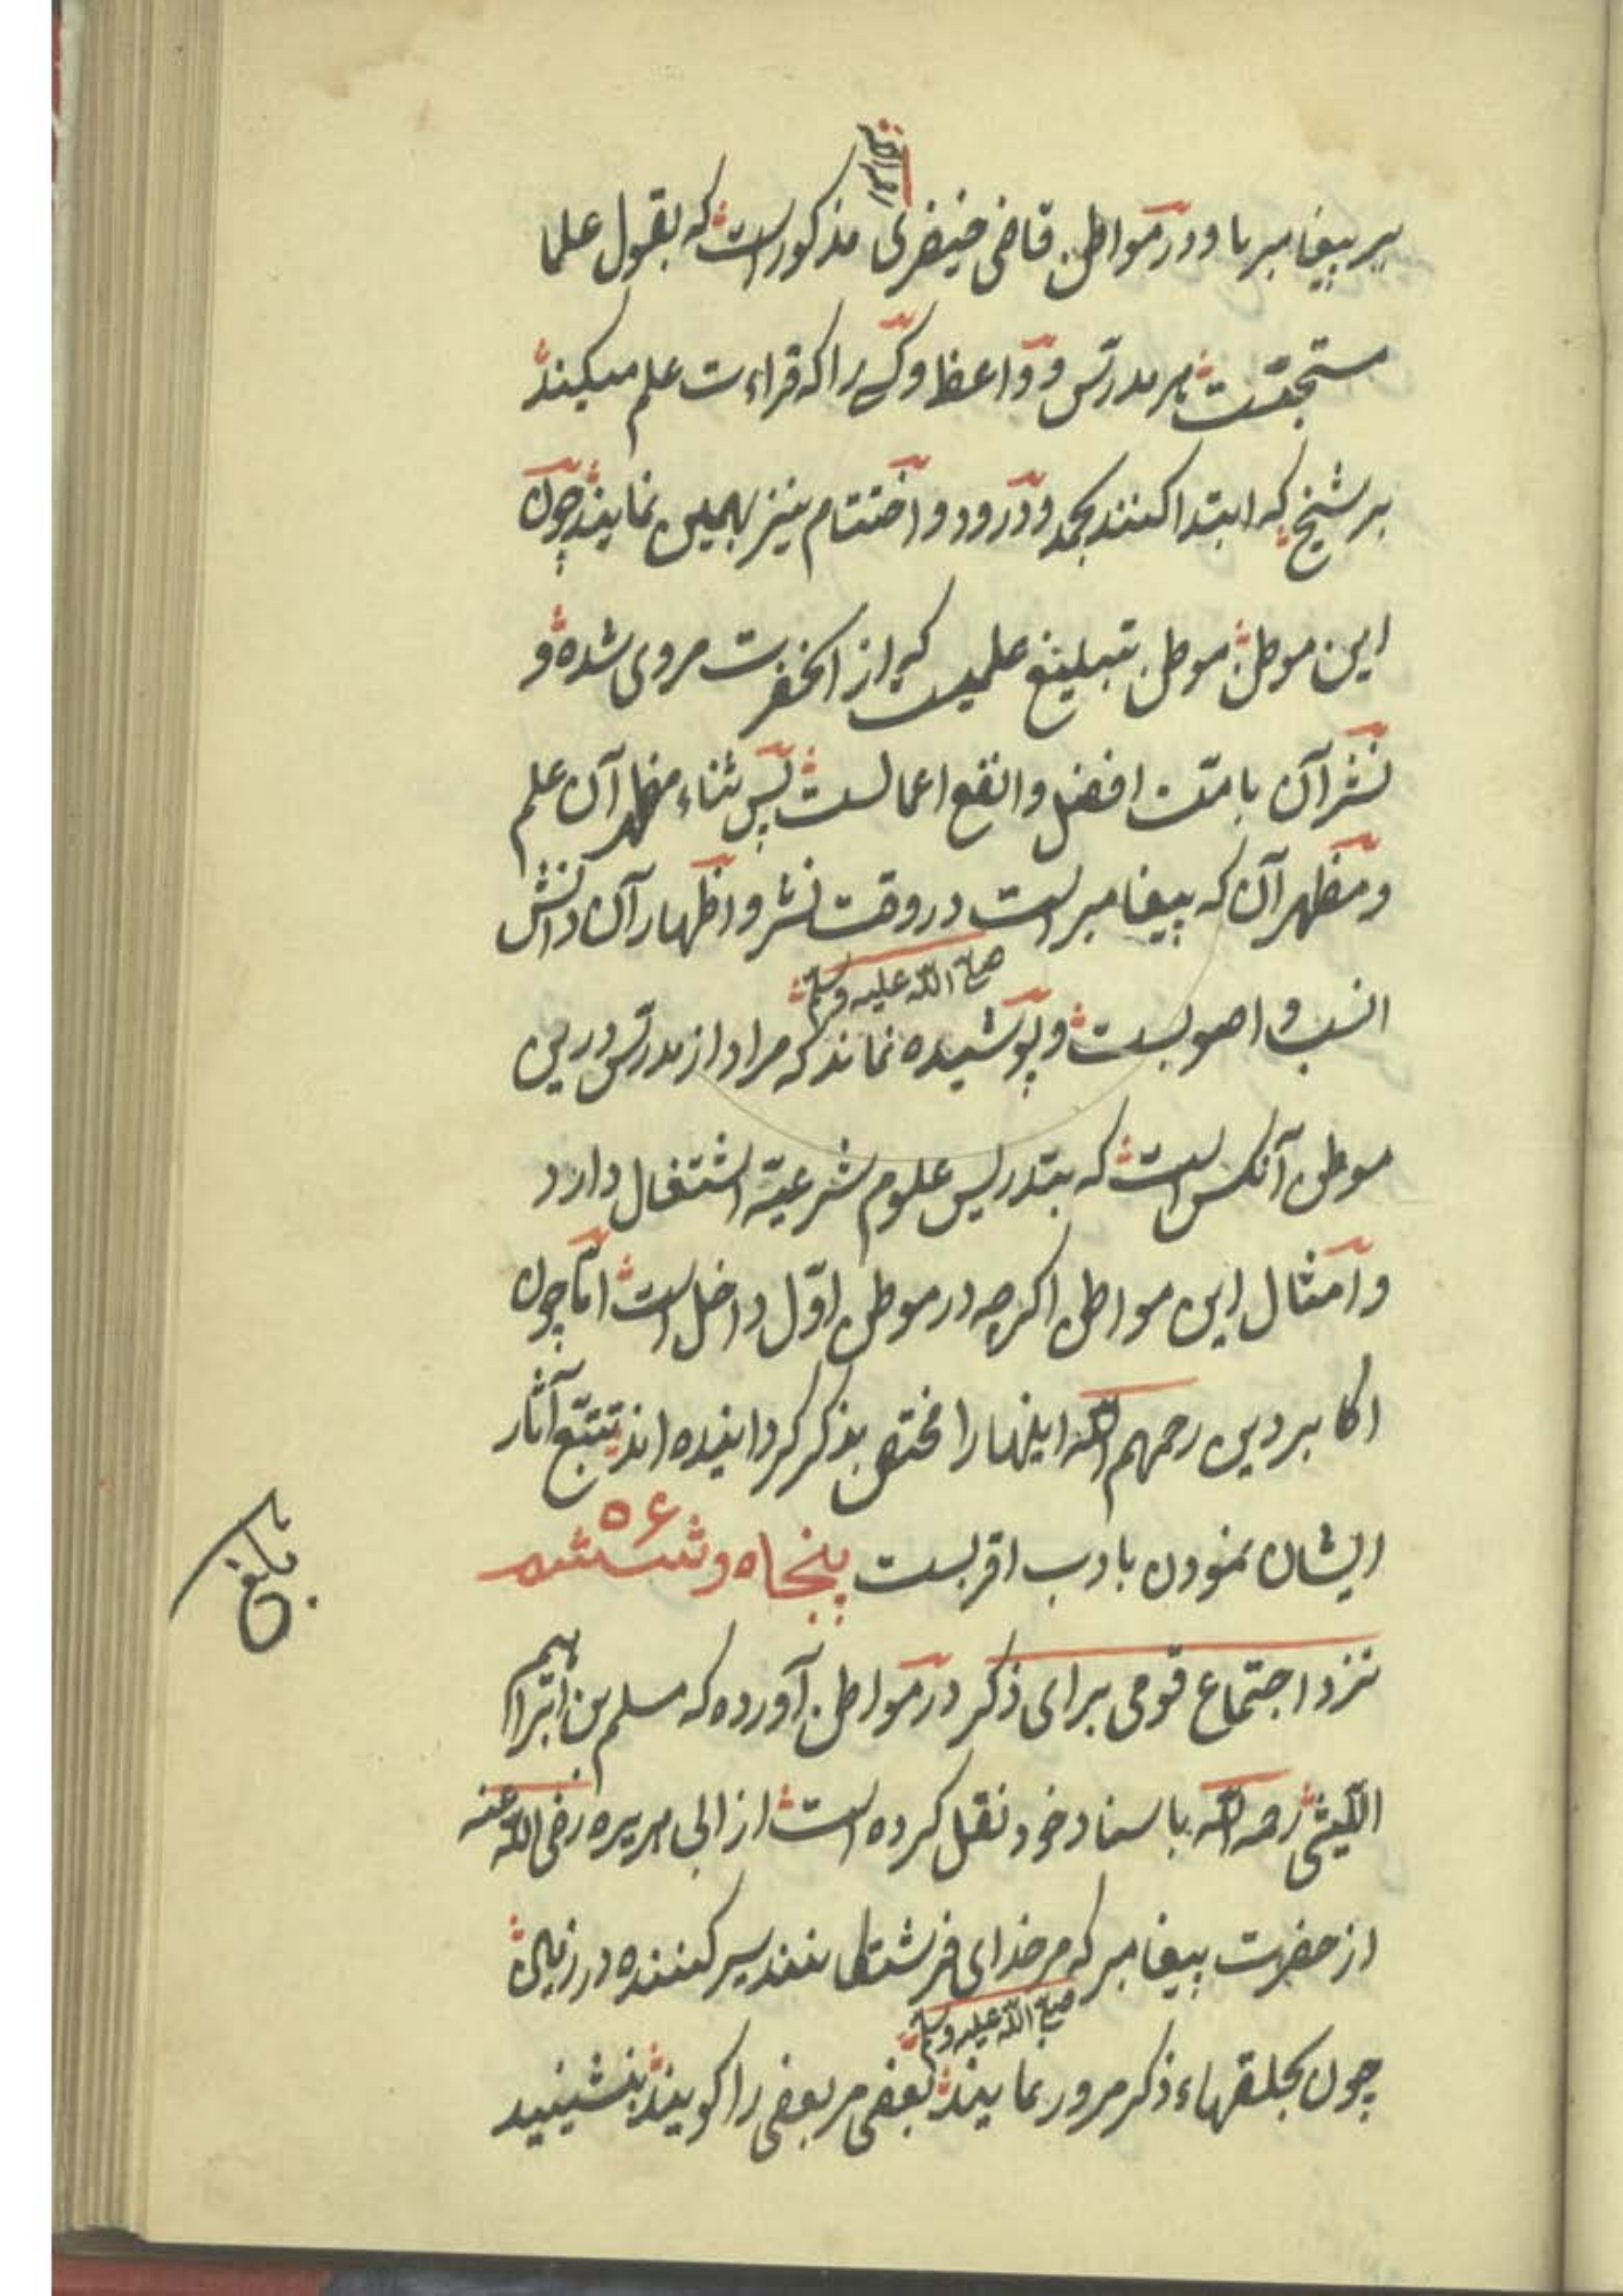 بر پیغامبر ما و در مواطن قاضی خیضری مذکور است که بقول علما
مستحبّست مر مدرّس و واعظ و کسی را که قراءت علم میکند
بر شیخ که ابتدا کنند بحمد و درود و اختتام نیز بهمین نمایند چون
این موطن موطن تبلیغ علمیست که از آنحضرت مروی شده و
نشر آن بامّت افضل و انفع اعمالست پس ثناء مظهر آن علم
و مظهر آن که پیغامبر است در وقت نشر و اظهار آن دانش
صلّی اللّه علیه و سلّم
انسب و اصوبست و پوشیده نماند که مراد از مدرّس درین
موطن آنکس است که بتدریس علوم شرعیّه اشتغال دارد
و امثال این مواطن اکرچه در موطن اوّل داخل است امّا چون
اکابر دین رحمهم اللّه اینها را مختص بذکر کردانیده اند تتبّع آثار
ایشان نمودن بادب اقربست پنجاه و ششم ۵۶
نزد اجتماع قومی برای ذکر در مواطن آورده که مسلم بن ابراهیم
اللّیثی رحمه اللّه باسناد خود نقل کرده است از ابی هریره رضی اللّه عنه
از حضرت پیغامبر که مر خدای فرشتکانند سیر کننده در زمین
صلّی اللّه علیه و سلّم
چون بحلقهاء ذکر مرور نمایند بعضی مر بعضی را کویند بنشینید
بلغ